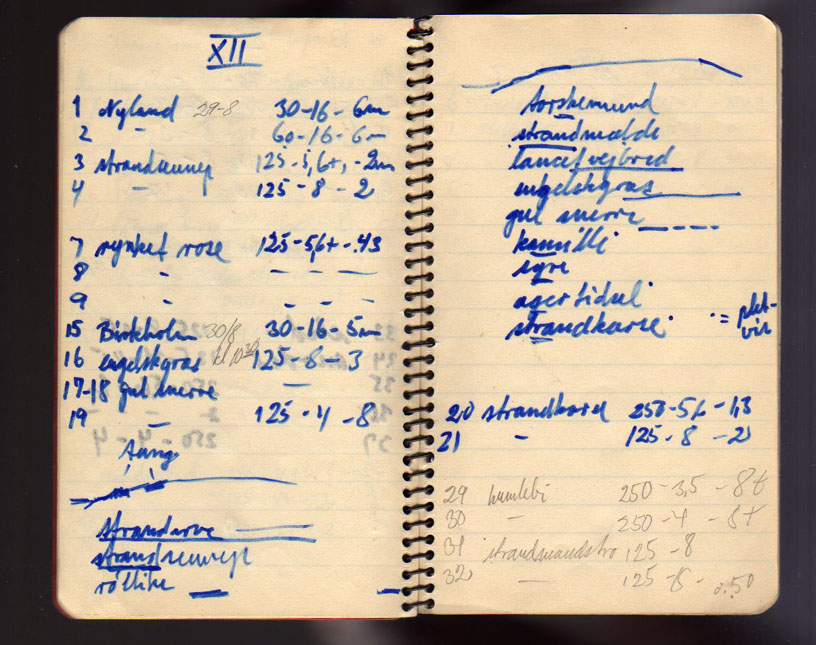 XII
1 Nyland 29-8 30-16-6m
2 - 60-16-6m
3 strandsennep 125-5,6+,-2m
4 - 125-8-2
7 rynket rose 125-5,6+-.43
8 - - - -
9 " - - -
15 Birkholm 30/8 30-16-5m
16 engelskgras kl 10 30 125-8-3
17-18 gul snerre -
19 - 125-4-8
tang
strandarve
strandsennep
röllike
torskemund
strandmælde
lancetvejbred
engelskgras
gul snerre
kamille
syre
agertidsel
strandkarse
= plet-
vis
20 250-5,6-1,3
21 - 125-8-2
29 humlebi 250-3,5-8t
30 - 250-4-8t
31 strandmandstro 125-8
32 - 125-8-0.50